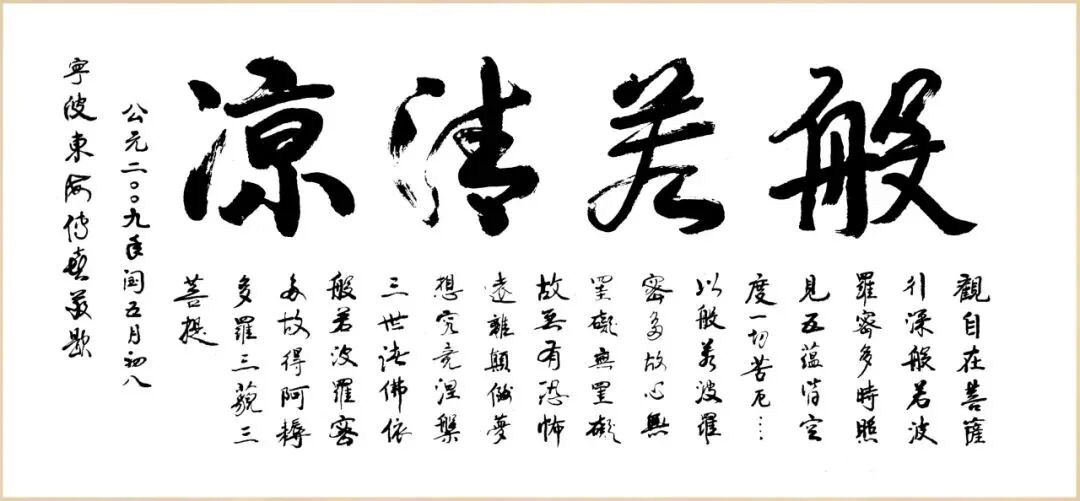 般若清涼
觀自在菩薩
行深般若波
羅密多時照
見五蘊皆空
度一切苦厄…
以般若波羅
密多故心無
罣礙無罣礙
故無有恐怖
遠離顛倒夢
想究竟涅槃
三世諸佛依
般若波羅密
多故得阿耨
多羅三藐三
菩提
公元二〇〇九年閏五月初八
寧波東海傳喜敬題